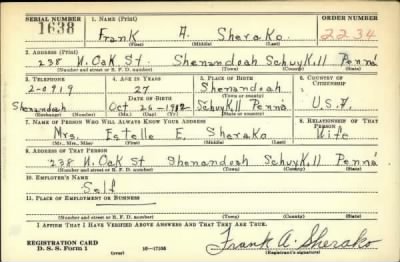 SERIAL NUMBER 1. NAME (Print) ORDER NUMBER
1638 Frank A. Sherako. 2234
(First) (Middle) (Last)
2. ADDRESS (Print)
238 N. Oak St. Shenandoah Schuykill Penna
(Number and street or R. F. D. number) (Town) (County) (State)
3. TELEPHONE 4. AGE IN YEARS 5. PLACE OF BIRTH 6. COUNTRY OF CITIZENSHIP
2-0919 27 Shenandoah
(Town or county)
DATE OF BIRTH
Shenandoah Oct 26-1912 Schuykill Penna U.S.A.
(Exchange) (Number) (Mo.) (Day) (Yr.) (State or country)
7. NAME OF PERSON WHO WILL ALWAYS KNOW YOUR ADDRESS 8. RELATIONSHIP OF THAT PERSON
Mrs. Estelle E. Sherako Wife
(Mr., Mrs., Miss) (First) (Middle) (Last)
9. ADDRESS OF THAT PERSON
238 N. Oak St Shenandoah Schuykill Penna
(Number and street or R. F. D. number) (Town) (County) (State)
10. EMPLOYER'S NAME
Self
11. PLACE OF EMPLOYMENT OR BUSINESS
(Number and street or R. F. D. number) (Town) (County) (State)
I AFFIRM THAT I HAVE VERIFIED ABOVE ANSWERS AND THAT THEY ARE TRUE.
REGISTRATION CARD
D. S. S. Form 1 16-17105 Frank A. Sherako
(Registrant's signature)